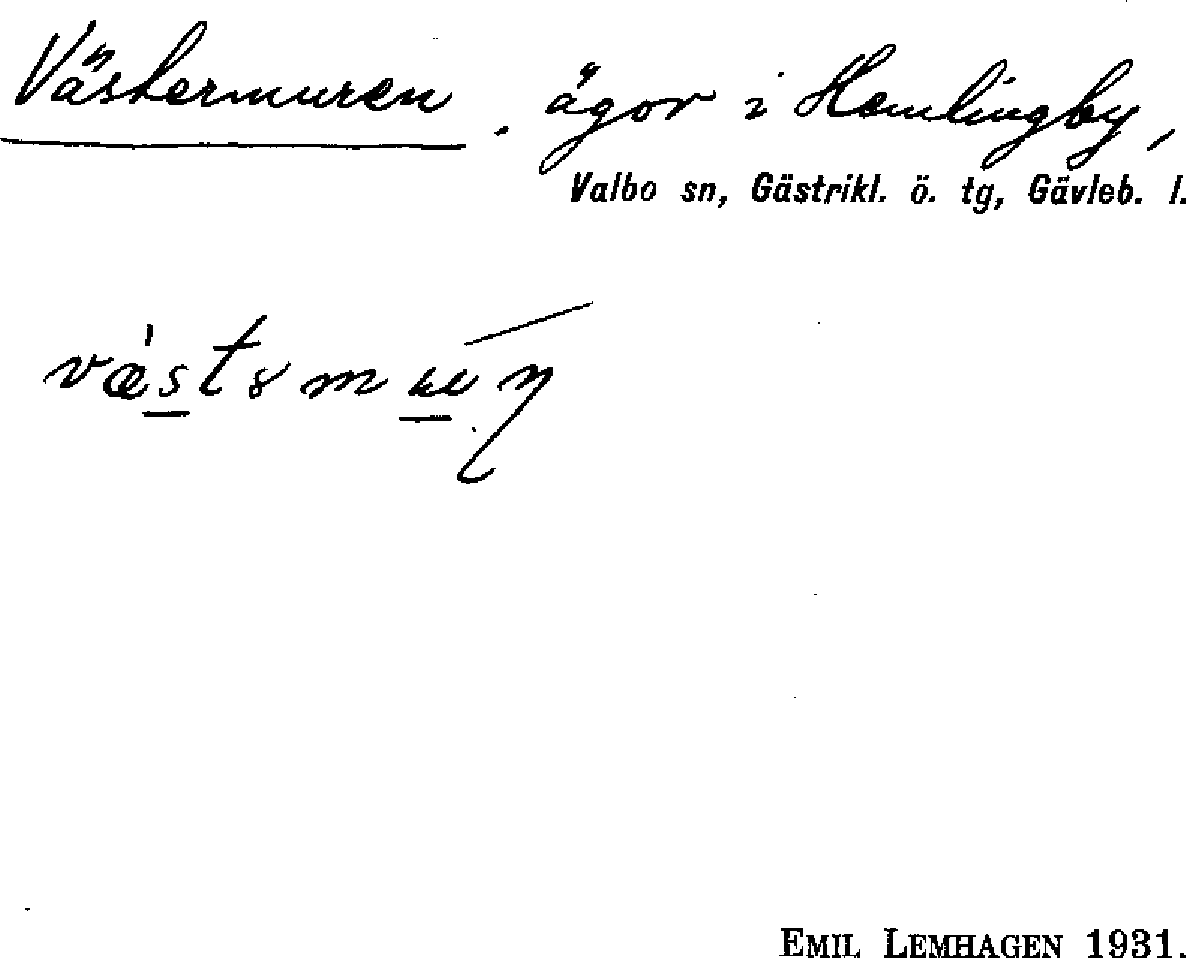 Västermuren. ägor i Hemlingby,
Valbo sn, Gästrikl. ö. tg, Gävleb. l.
EMIL LEMHAGEN 1931.